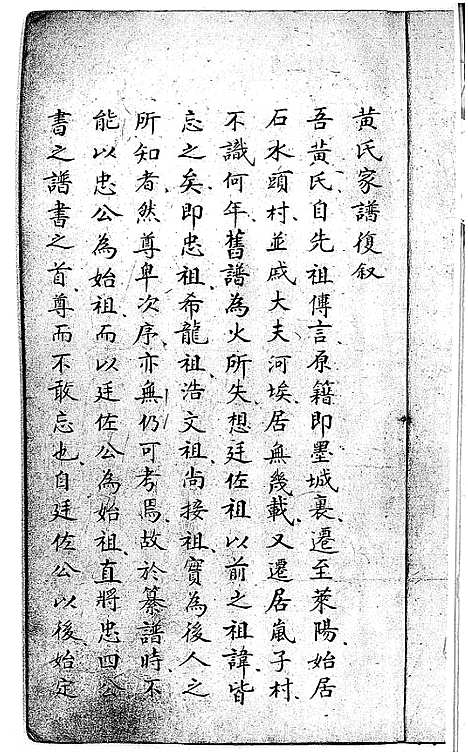 黃氏家譜復叙
吾黃氏自先祖傳言原籍即墨城裏、遷至萊陽、始居
石水頭村、並戚大夫河埃、居無幾載、又遷居嵐子村、
不識何年、舊譜為火所失、想廷佐祖以前之祖諱皆
忘之矣、即忠祖、希龍祖、浩文祖、尚接祖、實為後人之
所知者、然尊卑次序、亦無仍可考焉、故於纂譜時、不
能以忠公為始祖、而以廷佐公為始祖、直將忠四公
書之譜書之首、尊而不敢忘也、自廷佐公以後、始定